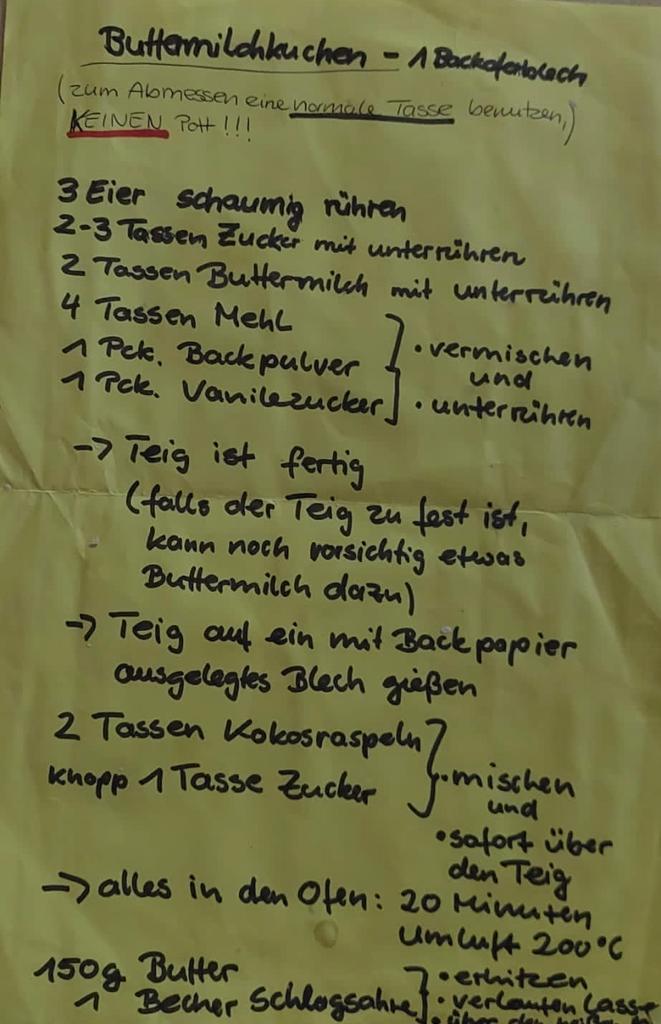 Buttermilchkuchen - 1 Backofenblech
(zum Abmessen eine normale Tasse benutzen,)
KEINEN Pott!!!
3 Eier schaumig rühren
2-3 Tassen Zucker mit unterrühren
2 Tassen Buttermilch mit unterrühren
4 Tassen Mehl
1 Pck. Backpulver
1 Pck. Vanilezucker
• vermischen
und
• unterrühren
-> Teig ist fertig
(falls der Teig zu fest ist,
kann noch vorsichtig etwas
Buttermilch dazu)
-> Teig auf ein mit Backpapier
ausgelegtes Blech gießen
2 Tassen Kokosraspeln
knapp 1 Tasse Zucker
• mischen
und
• sofort über
den Teig
-> alles in den Ofen: 20 Minuten
Umluft 200°C
150g Butter
1 Becher Schlagsahne
• erhitzen
• verlaufen lasse
• über den